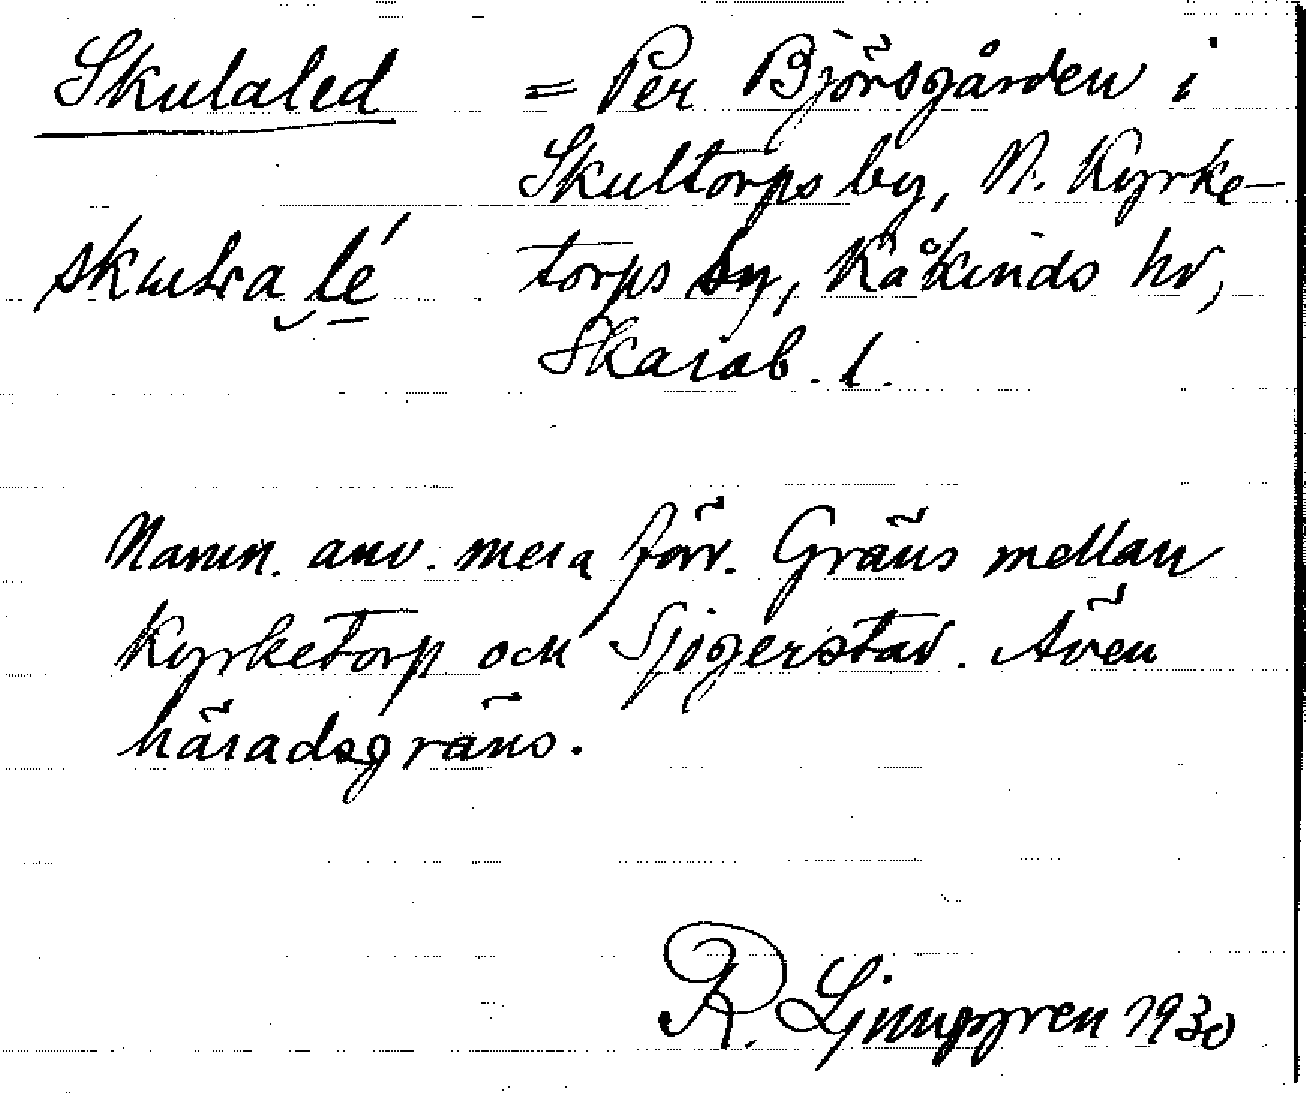 Skulaled = Per Björsgården i
Skultorps by, N. Kyrke-
torps sn, Kåkinds hd,
Skarab. l.
Namn. anv. mera förr. Gräns mellan
Kyrketorp och Sjogerstad. Även
häradsgräns.
R. Ljunggren 1930